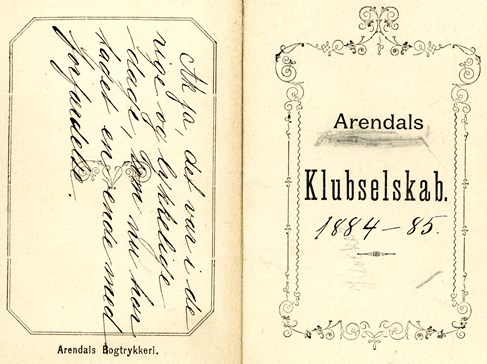 Ak ja, det var i de
rige og lykkelige
dage, som nu har
tadet en ende med
forfærdelse.
Arendals Bogtrykkeri.
Arendals
Klubselskab.
1884-85.